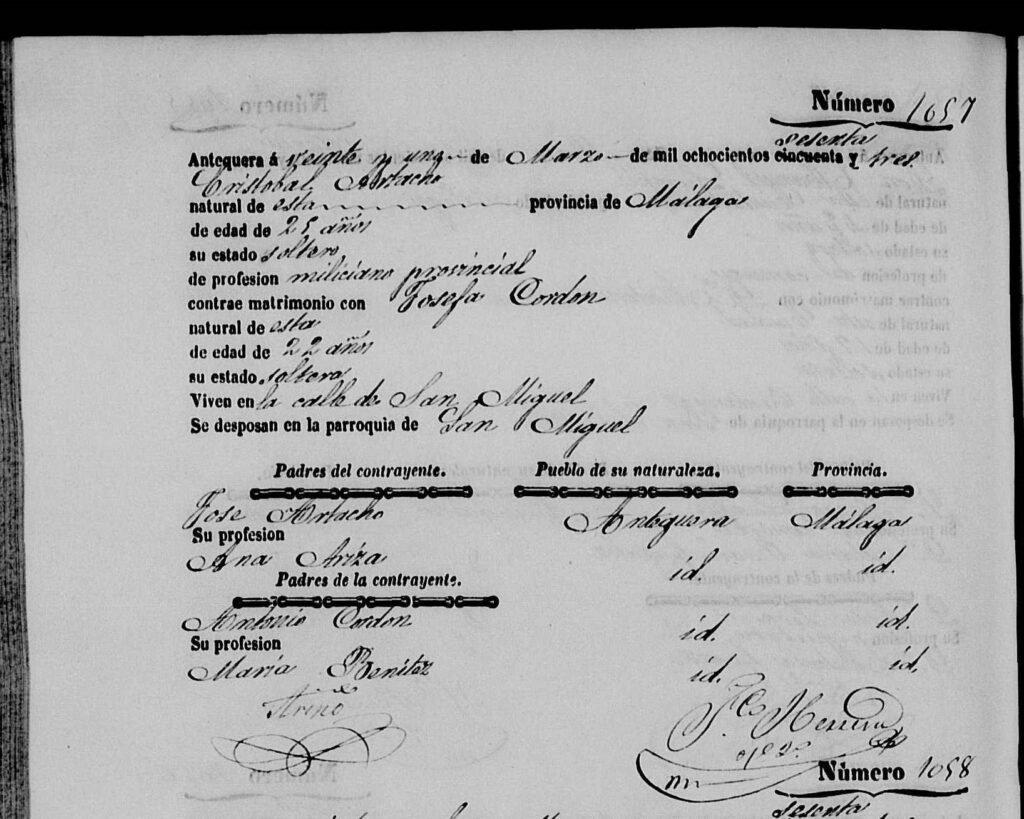 Número 1657
sesenta
Antequera á veinte y uno de Marzo de mil ochocientos cincuenta y tres.
Cristobal Artacho
natural de esta provincia de Málaga
de edad de 25 años
su estado soltero
de profesion miliciano provincial
contrae matrimonio con Josefa Cordon
natural de esta
de edad de 22 años
su estado soltera
Viven en la calle de San Miguel
Se desposan en la parroquia de San Miguel
Padres del contrayente. Pueblo de su naturaleza. Provincia.
Jose Artacho Antequera Málaga
Su profesion
Ana Ariza id. id.
Padres de la contrayente.
Antonio Cordon id. id.
Su profesion
María Benítez id. id.
Herrera
Número 1058
sesenta